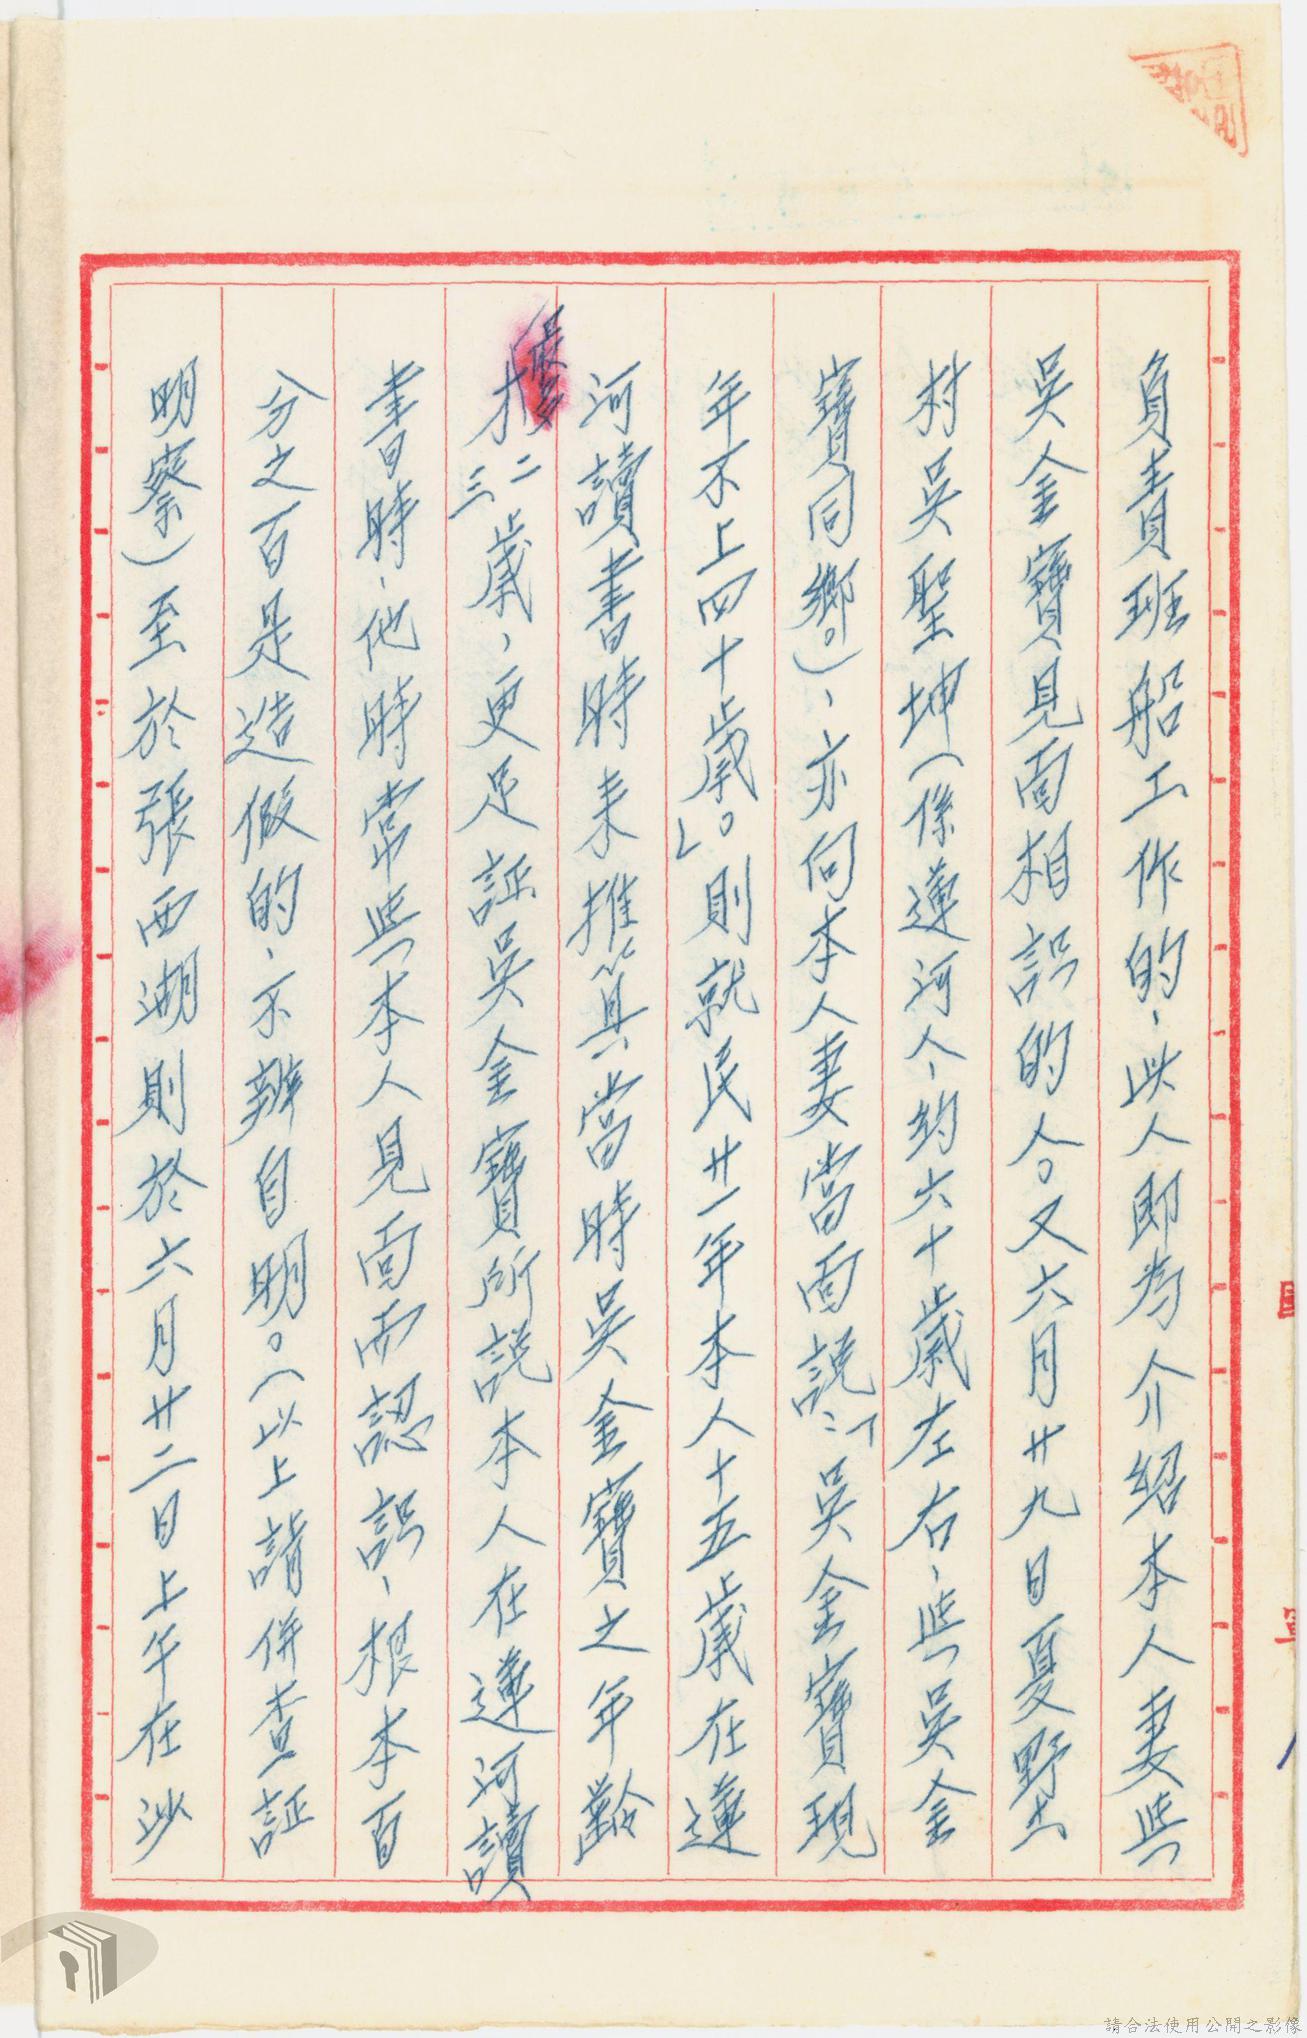 負責班船工作的、此人即為介紹本人妻與
吳金寶見面相認的人。又六月廿九日夏野土
村吳聖坤（係蓮河人、約六十歲左右、與吳金
寶同鄉。）、亦向本人妻當面說：「吳金寶現
年不上四十歲。」則就民廿一年本人十五歲在蓮
河讀書時來推算當時吳金寶之年齡
最多才二三歲、更足証吳金寶所說本人在蓮河讀
書時、他時常與本人見面而認識、根本百
分之百是造假的、不辨自明。（以上請併查証
明察）至於張西湖則於六月廿二日上午在沙
請合法使用公開之影像